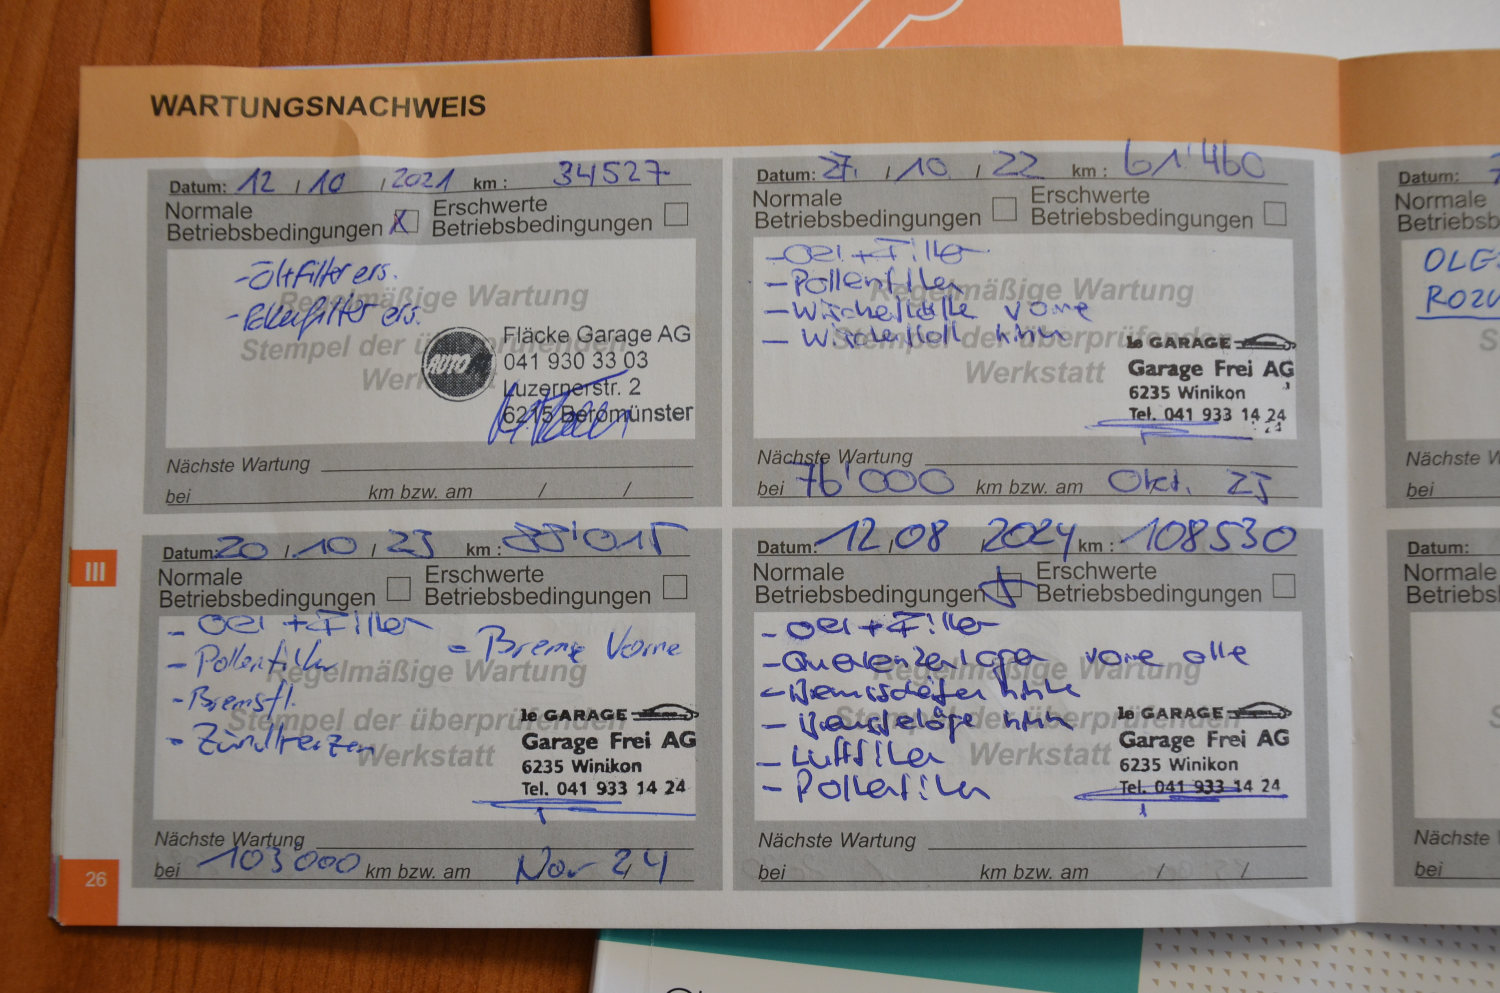 WARTUNGSNACHWEIS
Datum: 12 / 10 / 2021 km: 34527
Normale Betriebsbedingungen X Erschwerte Betriebsbedingungen
- Öl+Filter ers.
- Pollenfilter ers.
Regelmäßige Wartung
Stempel der überprüfenden
Werkstatt
AUTO
Fläcke Garage AG
041 930 33 03
Luzernerstr. 2
6215 Beromünster
Nächste Wartung
bei km bzw. am / /
Datum: 27. / 10 / 22 km: 61'460
Normale Betriebsbedingungen Erschwerte Betriebsbedingungen
- Oel + Filter
- Pollenfilter
- vorne
- hinten
Regelmäßige Wartung
Stempel der überprüfenden
Werkstatt
le GARAGE
Garage Frei AG
6235 Winikon
Tel. 041 933 14 24
Nächste Wartung
bei 76'000 km bzw. am Okt. 23
Datum: 20 / 10 / 23 km: 015
Normale Betriebsbedingungen Erschwerte Betriebsbedingungen
- Oel + Filter
- Pollenfilter
- Bremsfl.
- Zündkerzen
- Bremse Vorne
Regelmäßige Wartung
Stempel der überprüfenden
Werkstatt
le GARAGE
Garage Frei AG
6235 Winikon
Tel. 041 933 14 24
Nächste Wartung
bei 103000 km bzw. am Nov 24
Datum: 12 / 08 2024 km: 108530
Normale Betriebsbedingungen Erschwerte Betriebsbedingungen
- Oel + Filter
- Querlenkerlager vorne alle
- Bremsscheiben hinten
- Bremsbeläge hinten
- Luftfilter
- Pollenfilter
Regelmäßige Wartung
Stempel der überprüfenden
Werkstatt
le GARAGE
Garage Frei AG
6235 Winikon
Tel. 041 933 14 24
Nächste Wartung
bei km bzw. am / /
Datum:
Normale
OLGE
ROZU
Nächste W
bei
Datum:
Normale
Nächste
bei
III
26